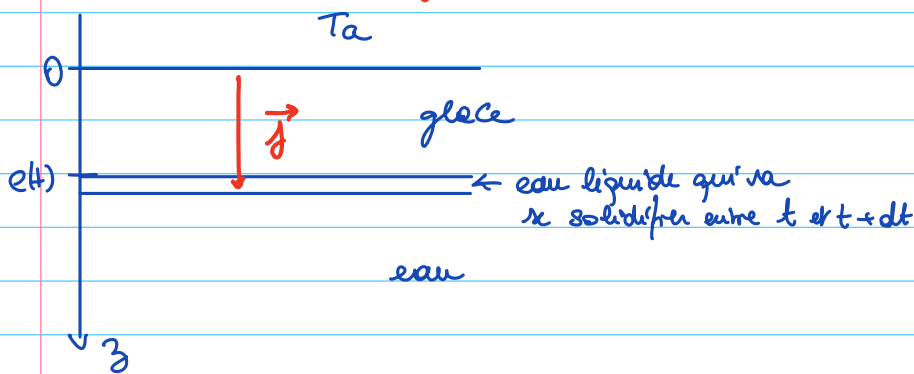 Ta
0
glace
j
e(t)
eau liquide qui va
se solidifier entre t et t + dt
eau
z